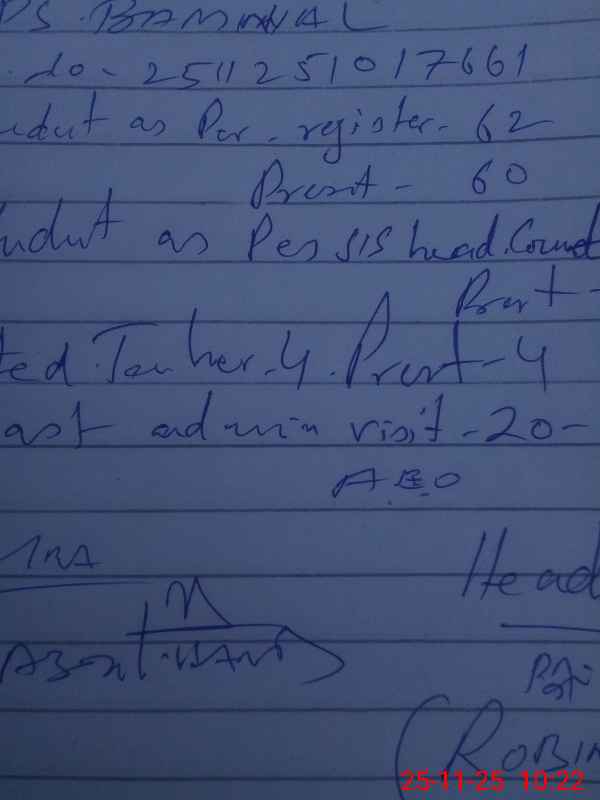 PS. BAMANAL
. do - 2511251017661
udut as Per - register - 62
Presnt - 60
udut as Per SIS head.Count
Prsnt -
ted. Teacher - 4. Presnt - 4
ast admin visit - 20 -
A.E.O
Head
(ROBIN
25-11-25 10:22